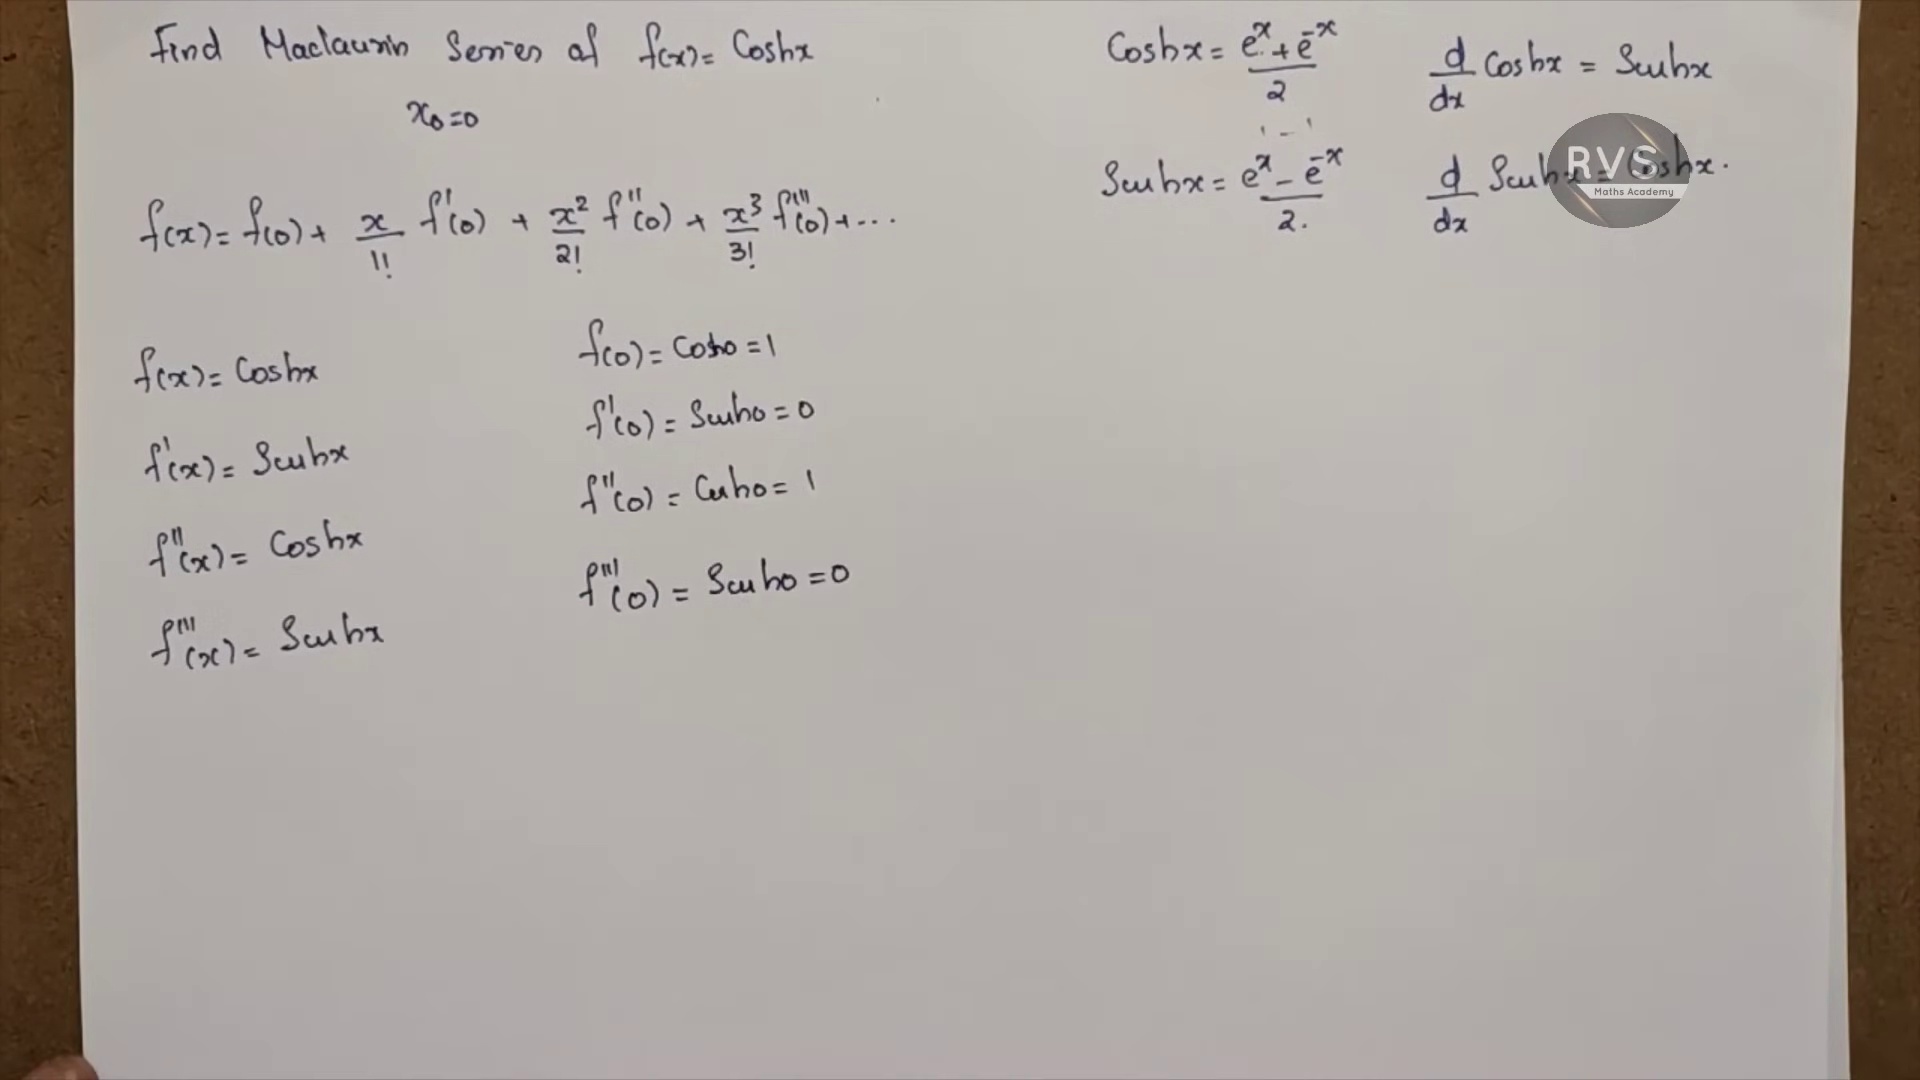 Find Maclaurin Series of f(x) = Coshx
x₀=0
f(x) = f(0) + x/1! f'(0) + x²/2! f''(0) + x³/3! f'''(0) + ...
f(x) = Coshx
f'(x) = Sinhx
f''(x) = Coshx
f'''(x) = Sinhx
f(0) = Cosh0 = 1
f'(0) = Sinh0 = 0
f''(0) = Cosh0 = 1
f'''(0) = Sinh0 = 0
Coshx = (eˣ + e⁻ˣ)/2
1 - 1
Sinhx = (eˣ - e⁻ˣ)/2.
d/dx Coshx = Sinhx
d/dx Sinhx = Coshx.
RVS
Maths Academy